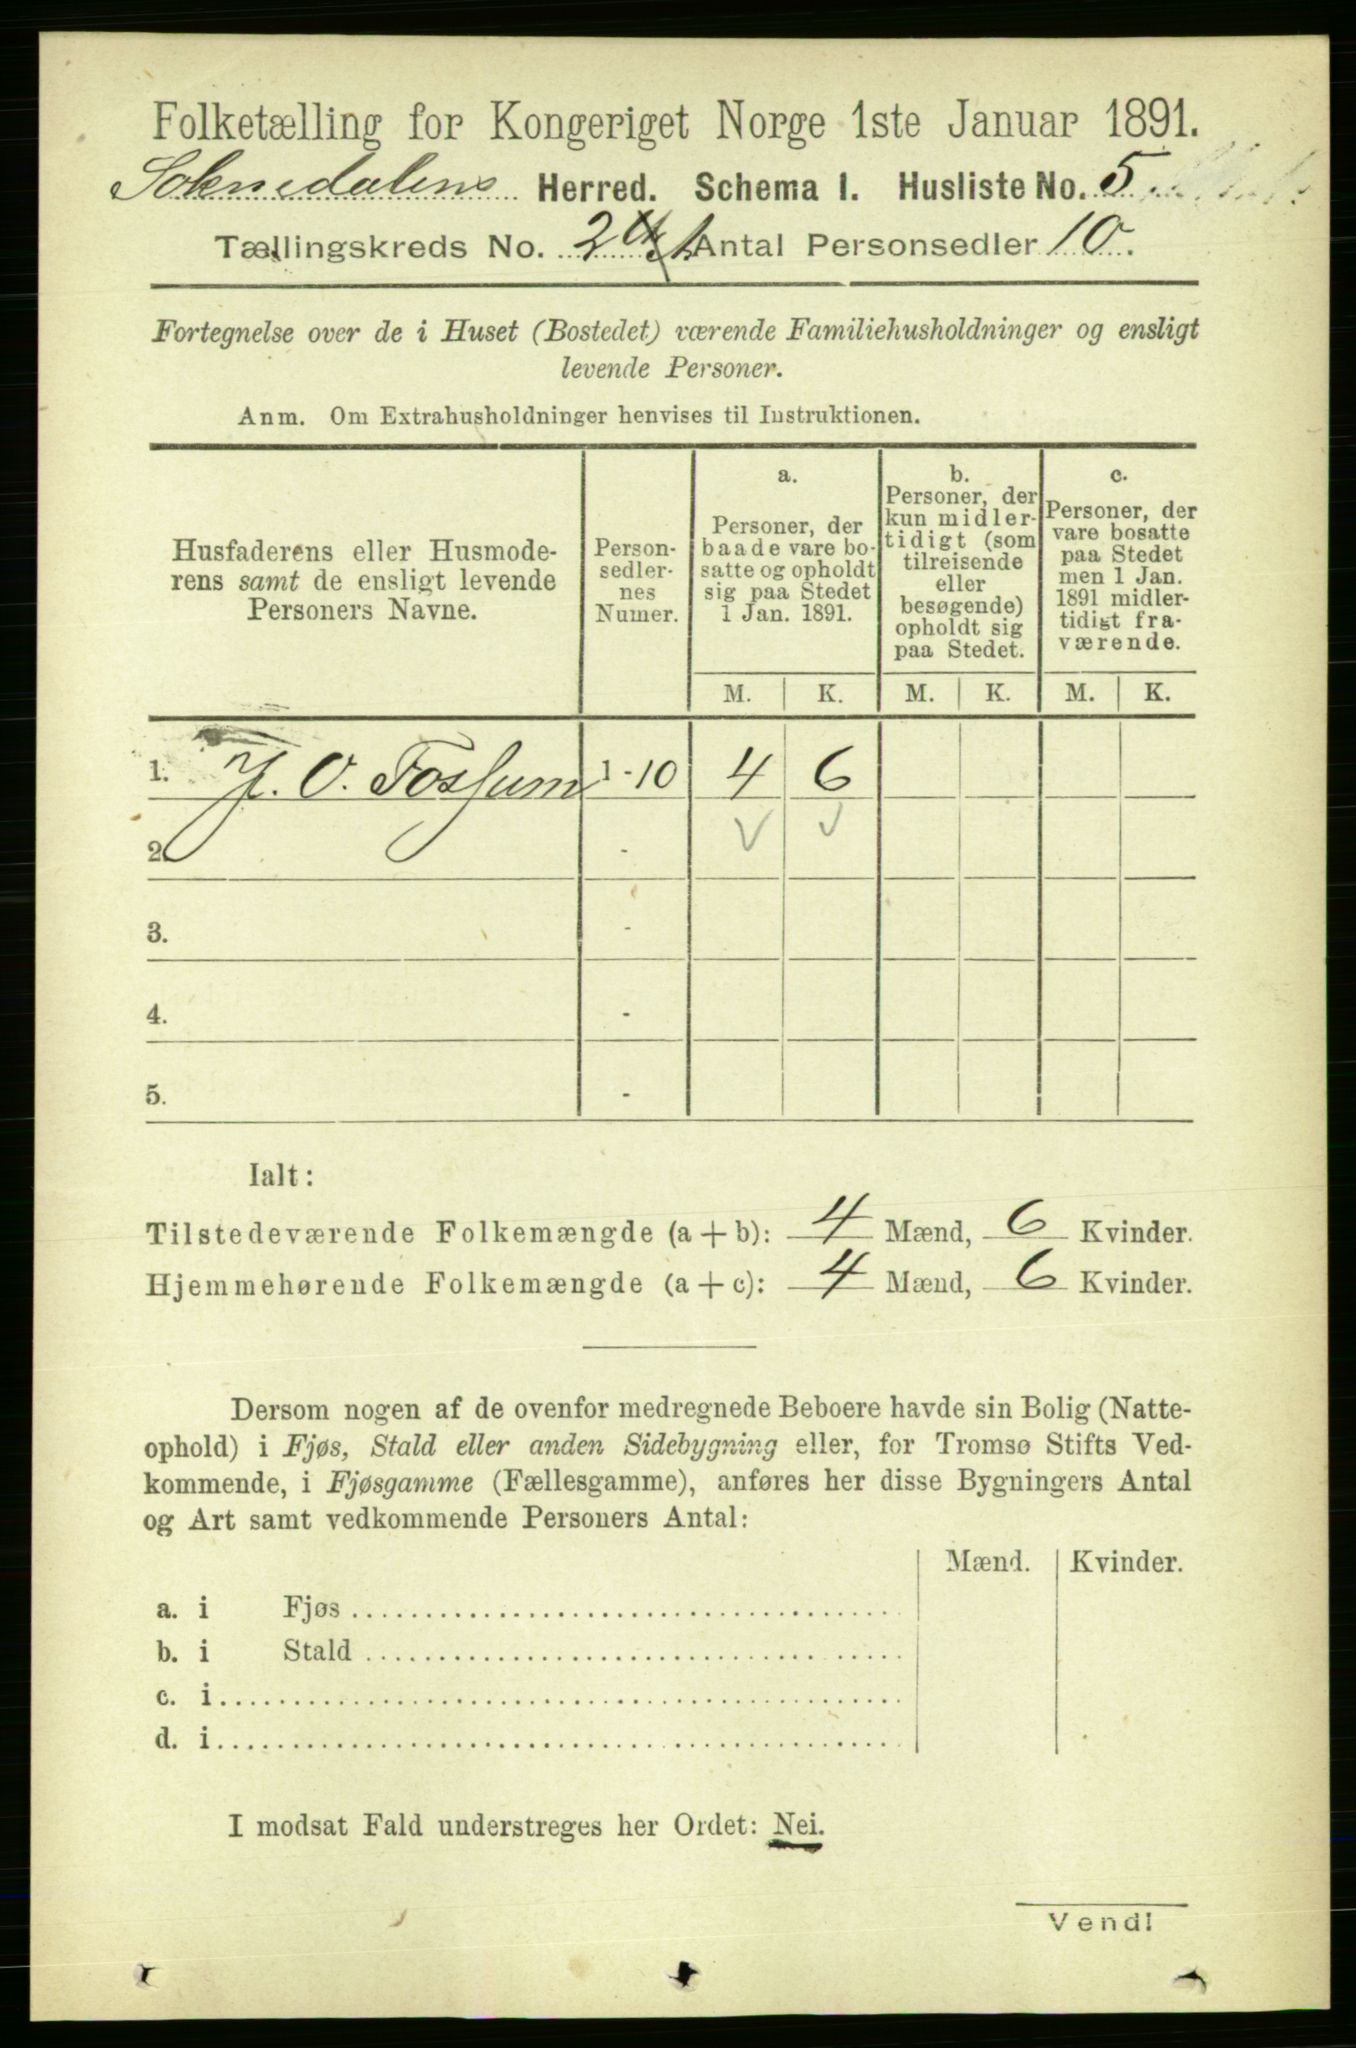 Folketælling for Kongeriget Norge 1ste Januar 1891.
Soknedalens Herred. Schema 1. Husliste No. 5
Tællingskreds No. 2 Antal Personsedler 10.
Fortegnelse over de i Huset (Bostedet) værende Familiehusholdninger og ensligt
levende Personer.
Anm. Om Extrahusholdninger henvises til Instruktionen.
Husfaderens eller Husmode-
rens samt de ensligt levende
Personers Navne.
Person-
sedler-
nes
Numer.
a.
Personer, der
baade vare bo-
satte og opholdt
sig paa Stedet
1 Jan. 1891.
b.
Personer, der
kun midler-
tidigt (som
tilreisende
eller
besøgende)
opholdt sig
paa Stedet.
c.
Personer, der
vare bosatte
paa Stedet
men 1 Jan.
1891 midler-
tidigt fra-
værende.
M. K. M. K. M. K.
1. J. O. Fossum 1-10 4 6
2. -
3. -
4. -
5. -
Ialt:
Tilstedeværende Folkemængde (a + b): 4 Mænd, 6 Kvinder.
Hjemmehørende Folkemængde (a + c): 4 Mænd, 6 Kvinder.
Dersom nogen af de ovenfor medregnede Beboere havde sin Bolig (Natte-
ophold) i Fjøs, Stald eller anden Sidebygning eller, for Tromsø Stifts Ved-
kommende, i Fjøsgamme (Fællesgamme), anføres her disse Bygningers Antal
og Art samt vedkommende Personers Antal:
Mænd. Kvinder.
a. i Fjøs
b. i Stald
c. i
d. i
I modsat Fald understreges her Ordet: Nei.
Vend!